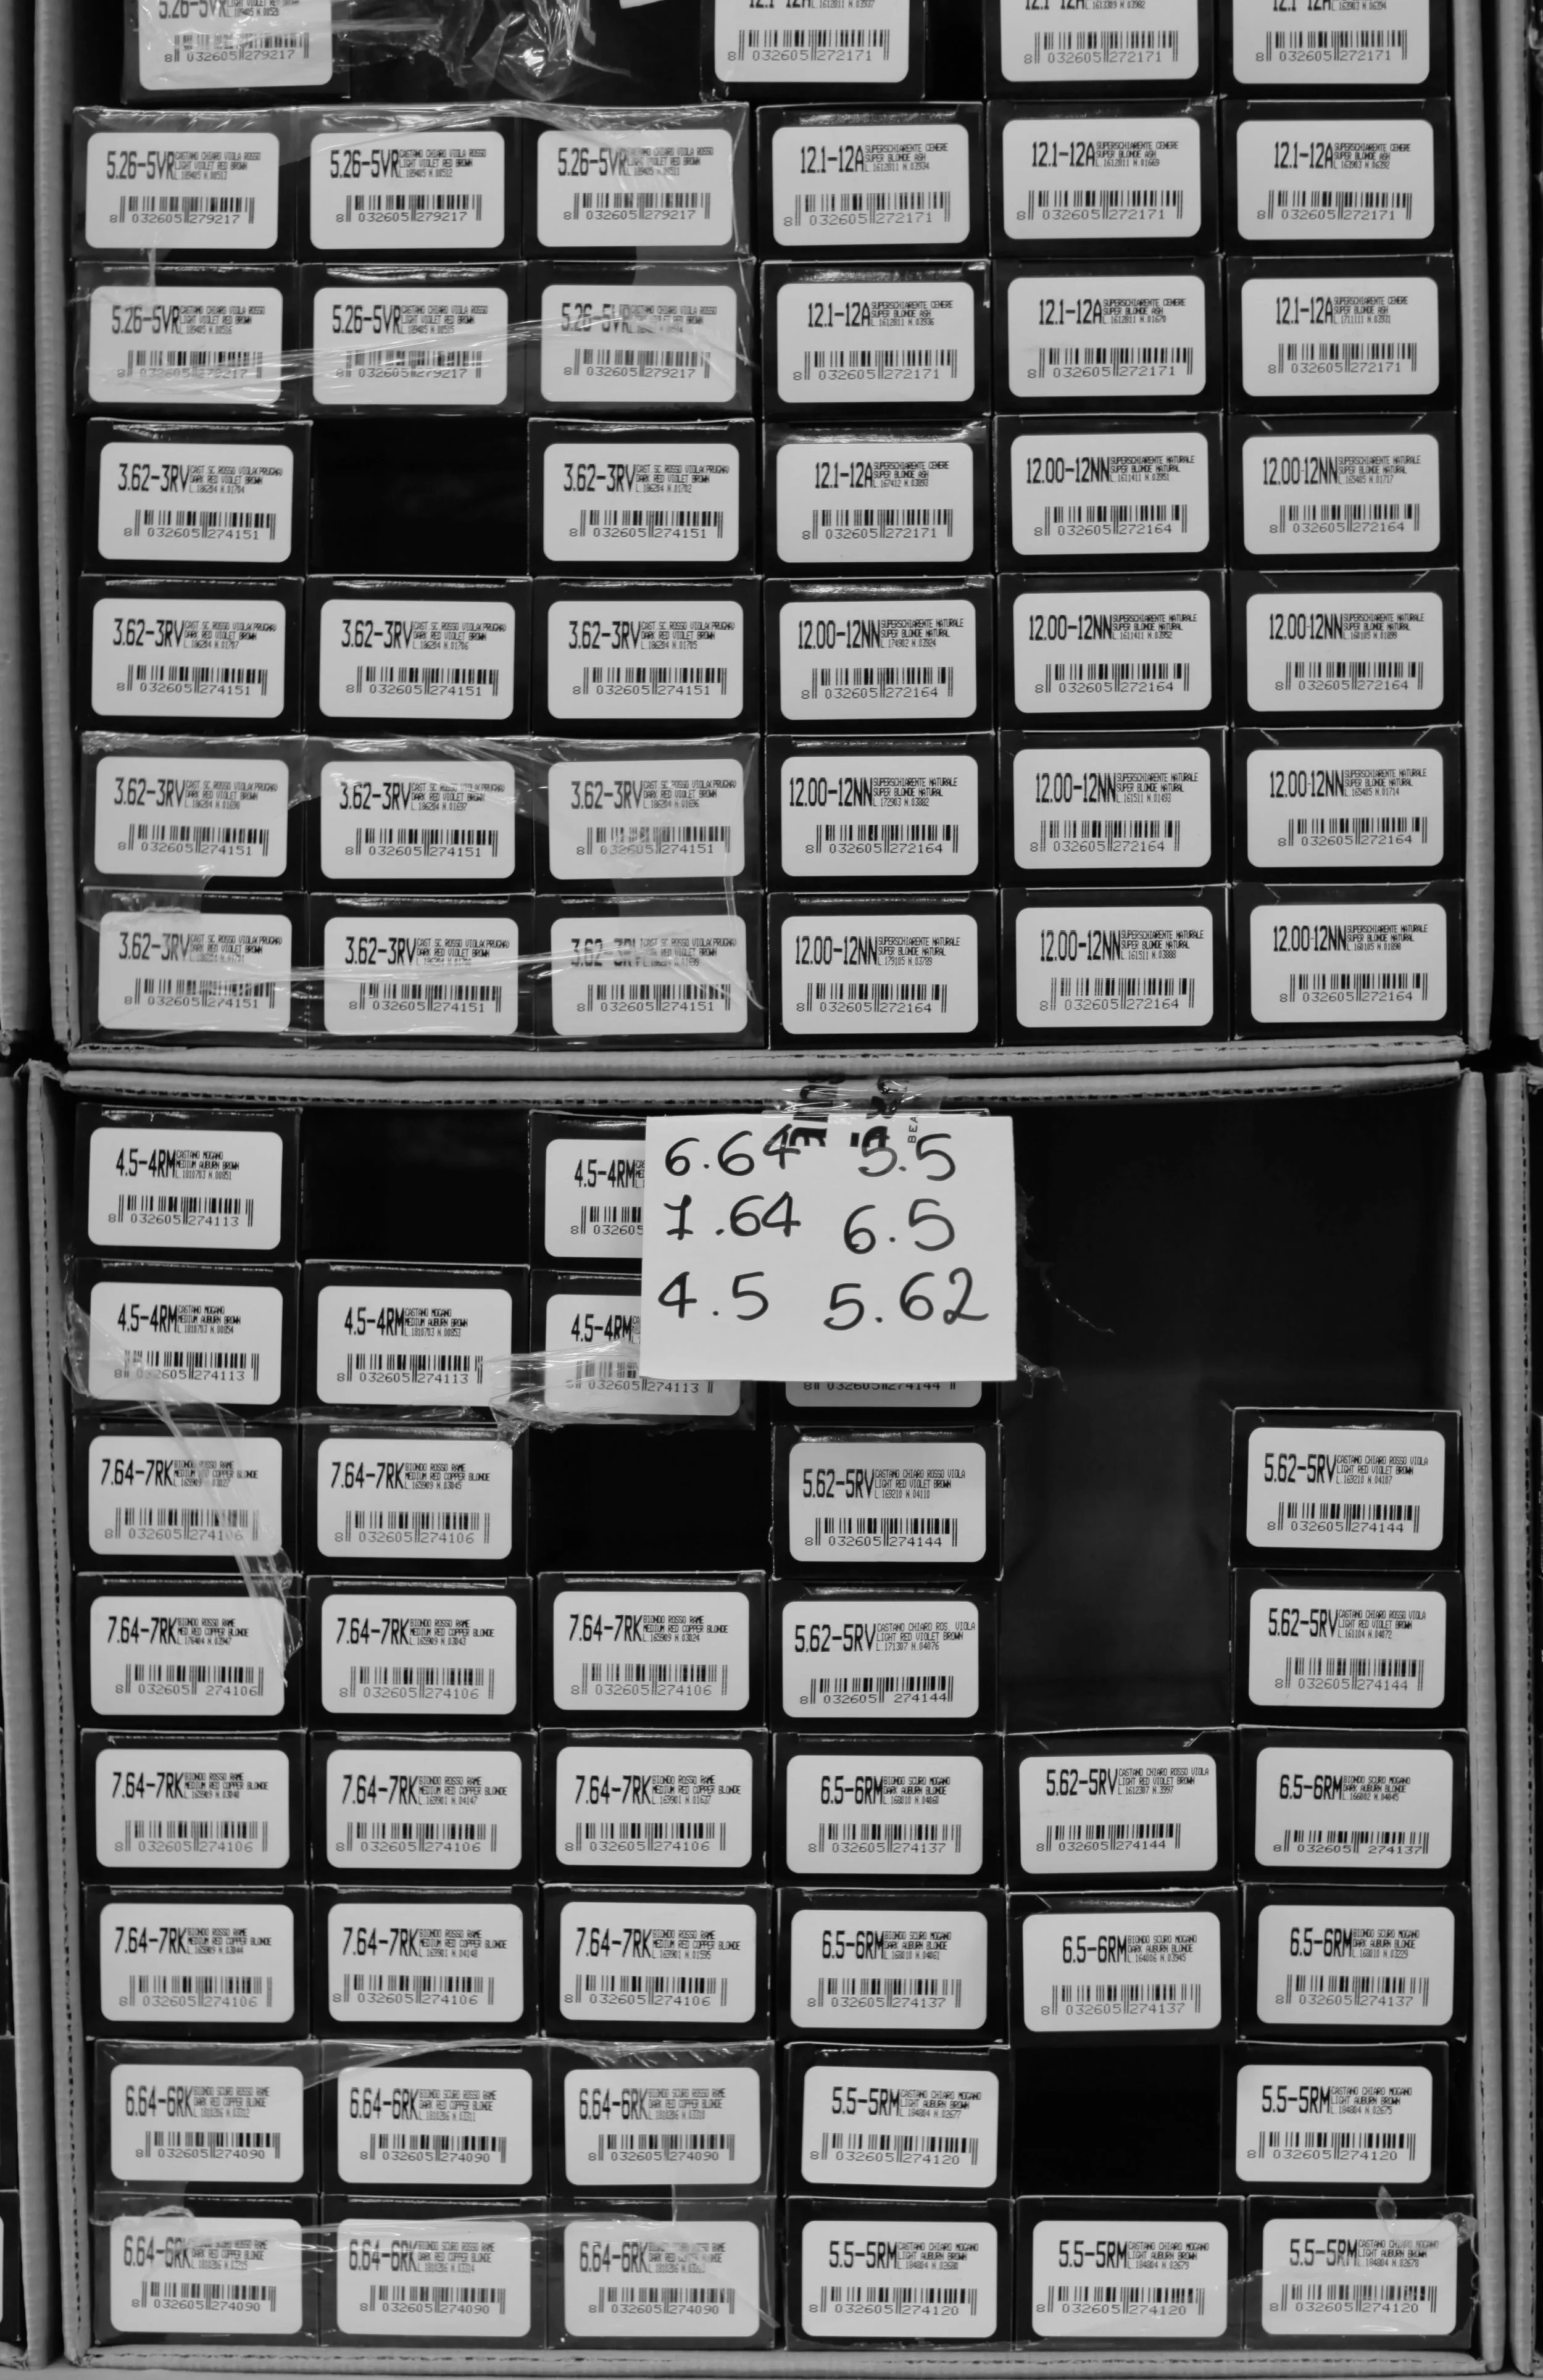 5.26-5VR
8 032605 279217
12.1-12A
8 032605 272171
12.1-12A
8 032605 272171
12.1-12A
8 032605 272171
5.26-5VR CASTANO CHIARO VIOLA ROSSO
LIGHT VIOLET RED BROWN
8 032605 279217
5.26-5VR CASTANO CHIARO VIOLA ROSSO
LIGHT VIOLET RED BROWN
8 032605 279217
5.26-5VR CASTANO CHIARO VIOLA ROSSO
LIGHT VIOLET RED BROWN
8 032605 279217
12.1-12A SUPERSCHIARENTE CENERE
SUPER BLONDE ASH
8 032605 272171
12.1-12A SUPERSCHIARENTE CENERE
SUPER BLONDE ASH
8 032605 272171
12.1-12A SUPERSCHIARENTE CENERE
SUPER BLONDE ASH
8 032605 272171
5.26-5VR CASTANO CHIARO VIOLA ROSSO
LIGHT VIOLET RED BROWN
8 032605 279217
5.26-5VR CASTANO CHIARO VIOLA ROSSO
LIGHT VIOLET RED BROWN
8 032605 279217
5.26-5VR CASTANO CHIARO VIOLA ROSSO
8 032605 279217
12.1-12A SUPERSCHIARENTE CENERE
SUPER BLONDE ASH
8 032605 272171
12.1-12A SUPERSCHIARENTE CENERE
SUPER BLONDE ASH
8 032605 272171
12.1-12A SUPERSCHIARENTE CENERE
SUPER BLONDE ASH
8 032605 272171
3.62-3RV CAST SC. ROSSO VIOLA(PRUGNA)
DARK RED VIOLET BROWN
8 032605 274151
3.62-3RV CAST SC. ROSSO VIOLA(PRUGNA)
DARK RED VIOLET BROWN
8 032605 274151
12.1-12A SUPERSCHIARENTE CENERE
SUPER BLONDE ASH
8 032605 272171
12.00-12NN SUPERSCHIARENTE NATURALE
SUPER BLONDE NATURAL
8 032605 272164
12.00-12NN SUPERSCHIARENTE NATURALE
SUPER BLONDE NATURAL
8 032605 272164
3.62-3RV CAST SC. ROSSO VIOLA(PRUGNA)
DARK RED VIOLET BROWN
8 032605 274151
3.62-3RV CAST SC. ROSSO VIOLA(PRUGNA)
DARK RED VIOLET BROWN
8 032605 274151
3.62-3RV CAST SC. ROSSO VIOLA(PRUGNA)
DARK RED VIOLET BROWN
8 032605 274151
12.00-12NN SUPERSCHIARENTE NATURALE
SUPER BLONDE NATURAL
8 032605 272164
12.00-12NN SUPERSCHIARENTE NATURALE
SUPER BLONDE NATURAL
8 032605 272164
12.00-12NN SUPERSCHIARENTE NATURALE
SUPER BLONDE NATURAL
8 032605 272164
3.62-3RV CAST SC. ROSSO VIOLA(PRUGNA)
DARK RED VIOLET BROWN
8 032605 274151
3.62-3RV CAST SC. ROSSO VIOLA(PRUGNA)
DARK RED VIOLET BROWN
8 032605 274151
3.62-3RV CAST SC. ROSSO VIOLA(PRUGNA)
DARK RED VIOLET BROWN
8 032605 274151
12.00-12NN SUPERSCHIARENTE NATURALE
SUPER BLONDE NATURAL
8 032605 272164
12.00-12NN SUPERSCHIARENTE NATURALE
SUPER BLONDE NATURAL
8 032605 272164
12.00-12NN SUPERSCHIARENTE NATURALE
SUPER BLONDE NATURAL
8 032605 272164
3.62-3RV CAST SC. ROSSO VIOLA(PRUGNA)
DARK RED VIOLET BROWN
8 032605 274151
3.62-3RV CAST SC. ROSSO VIOLA(PRUGNA)
DARK RED VIOLET BROWN
8 032605 274151
3.62-3RV CAST SC. ROSSO VIOLA(PRUGNA)
DARK RED VIOLET BROWN
8 032605 274151
12.00-12NN SUPERSCHIARENTE NATURALE
SUPER BLONDE NATURAL
8 032605 272164
12.00-12NN SUPERSCHIARENTE NATURALE
SUPER BLONDE NATURAL
8 032605 272164
12.00-12NN SUPERSCHIARENTE NATURALE
SUPER BLONDE NATURAL
8 032605 272164
4.5-4RM CASTANO MOGANO
MEDIUM AUBURN BROWN
8 032605 274113
4.5-4RM
8 032605
6.64 5.5
7.64 6.5
4.5 5.62
4.5-4RM CASTANO MOGANO
MEDIUM AUBURN BROWN
8 032605 274113
4.5-4RM CASTANO MOGANO
MEDIUM AUBURN BROWN
8 032605 274113
4.5-4RM
8 032605 274113
8 032605 274144
7.64-7RK BIONDO ROSSO RAME
MEDIUM RED COPPER BLONDE
8 032605 274106
7.64-7RK BIONDO ROSSO RAME
MEDIUM RED COPPER BLONDE
8 032605 274106
5.62-5RV CASTANO CHIARO ROSSO VIOLA
LIGHT RED VIOLET BROWN
8 032605 274144
5.62-5RV CASTANO CHIARO ROSSO VIOLA
LIGHT RED VIOLET BROWN
8 032605 274144
7.64-7RK BIONDO ROSSO RAME
MED RED COPPER BLONDE
8 032605 274106
7.64-7RK BIONDO ROSSO RAME
MEDIUM RED COPPER BLONDE
8 032605 274106
7.64-7RK BIONDO ROSSO RAME
MEDIUM RED COPPER BLONDE
8 032605 274106
5.62-5RV CASTANO CHIARO ROS. VIOLA
LIGHT RED VIOLET BROWN
L.171307 N.04076
8 032605 274144
5.62-5RV CASTANO CHIARO ROSSO VIOLA
LIGHT RED VIOLET BROWN
8 032605 274144
7.64-7RK BIONDO ROSSO RAME
MEDIUM RED COPPER BLONDE
8 032605 274106
7.64-7RK BIONDO ROSSO RAME
MEDIUM RED COPPER BLONDE
8 032605 274106
7.64-7RK BIONDO ROSSO RAME
MEDIUM RED COPPER BLONDE
8 032605 274106
6.5-6RM BIONDO SCURO MOGANO
DARK AUBURN BLONDE
8 032605 274137
5.62-5RV CASTANO CHIARO ROSSO VIOLA
LIGHT RED VIOLET BROWN
8 032605 274144
6.5-6RM BIONDO SCURO MOGANO
DARK AUBURN BLONDE
8 032605 274137
7.64-7RK BIONDO ROSSO RAME
MEDIUM RED COPPER BLONDE
8 032605 274106
7.64-7RK BIONDO ROSSO RAME
MEDIUM RED COPPER BLONDE
8 032605 274106
7.64-7RK BIONDO ROSSO RAME
MEDIUM RED COPPER BLONDE
8 032605 274106
6.5-6RM BIONDO SCURO MOGANO
DARK AUBURN BLONDE
8 032605 274137
6.5-6RM BIONDO SCURO MOGANO
DARK AUBURN BLONDE
8 032605 274137
6.5-6RM BIONDO SCURO MOGANO
DARK AUBURN BLONDE
8 032605 274137
6.64-6RK BIONDO SCURO ROSSO RAME
DARK RED COPPER BLONDE
8 032605 274090
6.64-6RK BIONDO SCURO ROSSO RAME
DARK RED COPPER BLONDE
8 032605 274090
6.64-6RK BIONDO SCURO ROSSO RAME
DARK RED COPPER BLONDE
8 032605 274090
5.5-5RM CASTANO CHIARO MOGANO
LIGHT AUBURN BROWN
8 032605 274120
5.5-5RM CASTANO CHIARO MOGANO
LIGHT AUBURN BROWN
8 032605 274120
6.64-6RK BIONDO SCURO ROSSO RAME
DARK RED COPPER BLONDE
8 032605 274090
6.64-6RK BIONDO SCURO ROSSO RAME
DARK RED COPPER BLONDE
8 032605 274090
6.64-6RK
DARK RED COPPER BLONDE
8 032605 274090
5.5-5RM CASTANO CHIARO MOGANO
LIGHT AUBURN BROWN
8 032605 274120
5.5-5RM CASTANO CHIARO MOGANO
LIGHT AUBURN BROWN
8 032605 274120
5.5-5RM CASTANO CHIARO MOGANO
LIGHT AUBURN BROWN
8 032605 274120